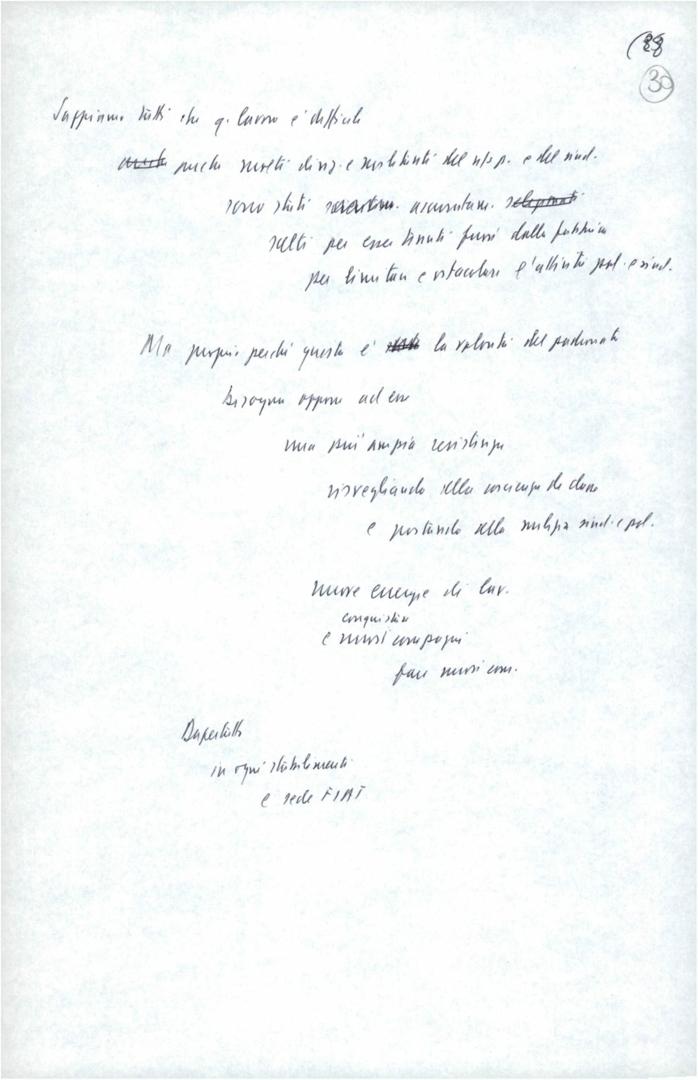 (28
30
Sappiamo tutti che q. lavoro è difficile
anche perché molti dirig. e militanti del n/s p. e del sind.
sono stati accuratam.
scelti per esser tenuti fuori dalla fabbrica
per limitare e ostacolare l'attività pol. e sind.
Ma proprio perché questa è la volontà del padronato
bisogna opporre ad essa
una più ampia resistenza
risvegliando alla coscienza di classe
e portando alla milizia sind. e pol.
nuove energie di lav.
conquistare
e nuovi compagni
fare nuovi com.
Dapertutto
in ogni stabilimento
e sede FIAT